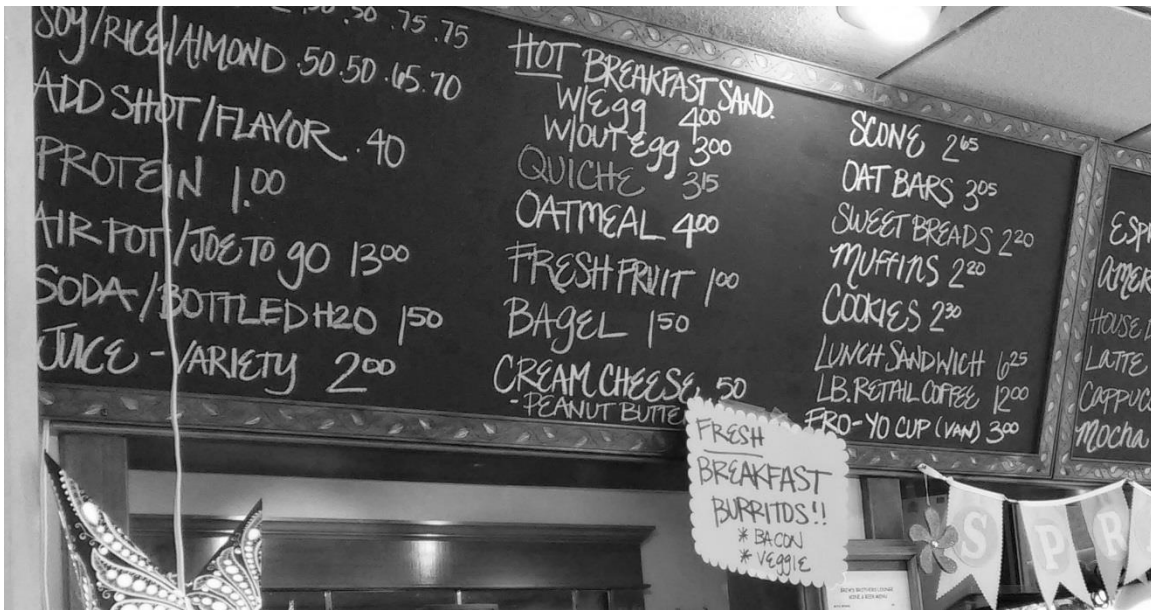 .50 .50 .75 .75
SOY/RICE/ALMOND .50 .50 .65 .70
ADD SHOT/FLAVOR .40
PROTEIN 1.00
AIR POT/JOE TO GO 13.00
SODA/BOTTLED H2O 1.50
JUICE - VARIETY 2.00
HOT BREAKFAST SAND.
W/EGG 4.00
W/OUT EGG 3.00
QUICHE 3.15
OATMEAL 4.00
FRESH FRUIT 1.00
BAGEL 1.50
CREAM CHEESE .50
- PEANUT BUTTE
SCONE 2.65
OAT BARS 3.05
SWEET BREADS 2.20
MUFFINS 2.20
COOKIES 2.30
LUNCH SANDWICH 6.25
LB. RETAIL COFFEE 12.00
FRO-YO CUP (VAN) 3.00
ESPR
AMER
HOUSE
LATTE
CAPPUC
MOCHA
FRESH
BREAKFAST
BURRITOS!!
* BACON
* VEGGIE
SPR